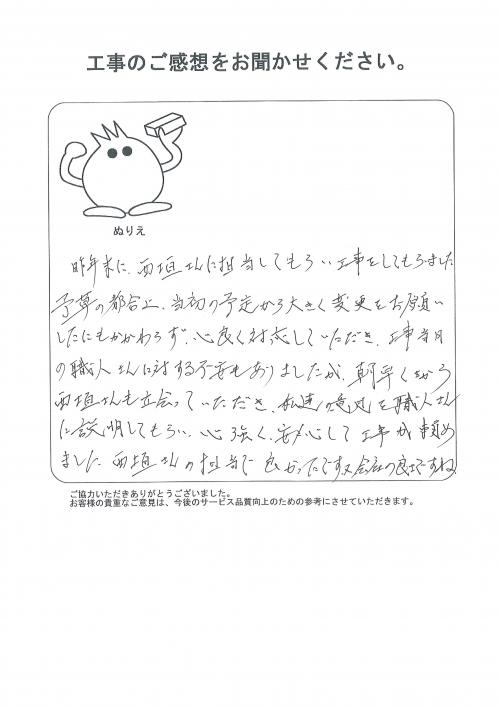 工事のご感想をお聞かせください。
ぬりえ
昨年末に、西垣さんに担当してもらい工事をしてもらいました
予算の都合上、当初の予定から大きく変更をお願い
したにもかかわらず、心良く対応していただき、工事当日
の職人さんに対する不安もありましたが、朝早くから
西垣さんも立会っていただき、私達の意見を職人さん
に説明してもらい、心強く、安心して工事が頼め
ました 西垣さんの担当で良かったです
ご協力いただきありがとうございました。
お客様の貴重なご意見は、今後のサービス品質向上のための参考にさせていただきます。